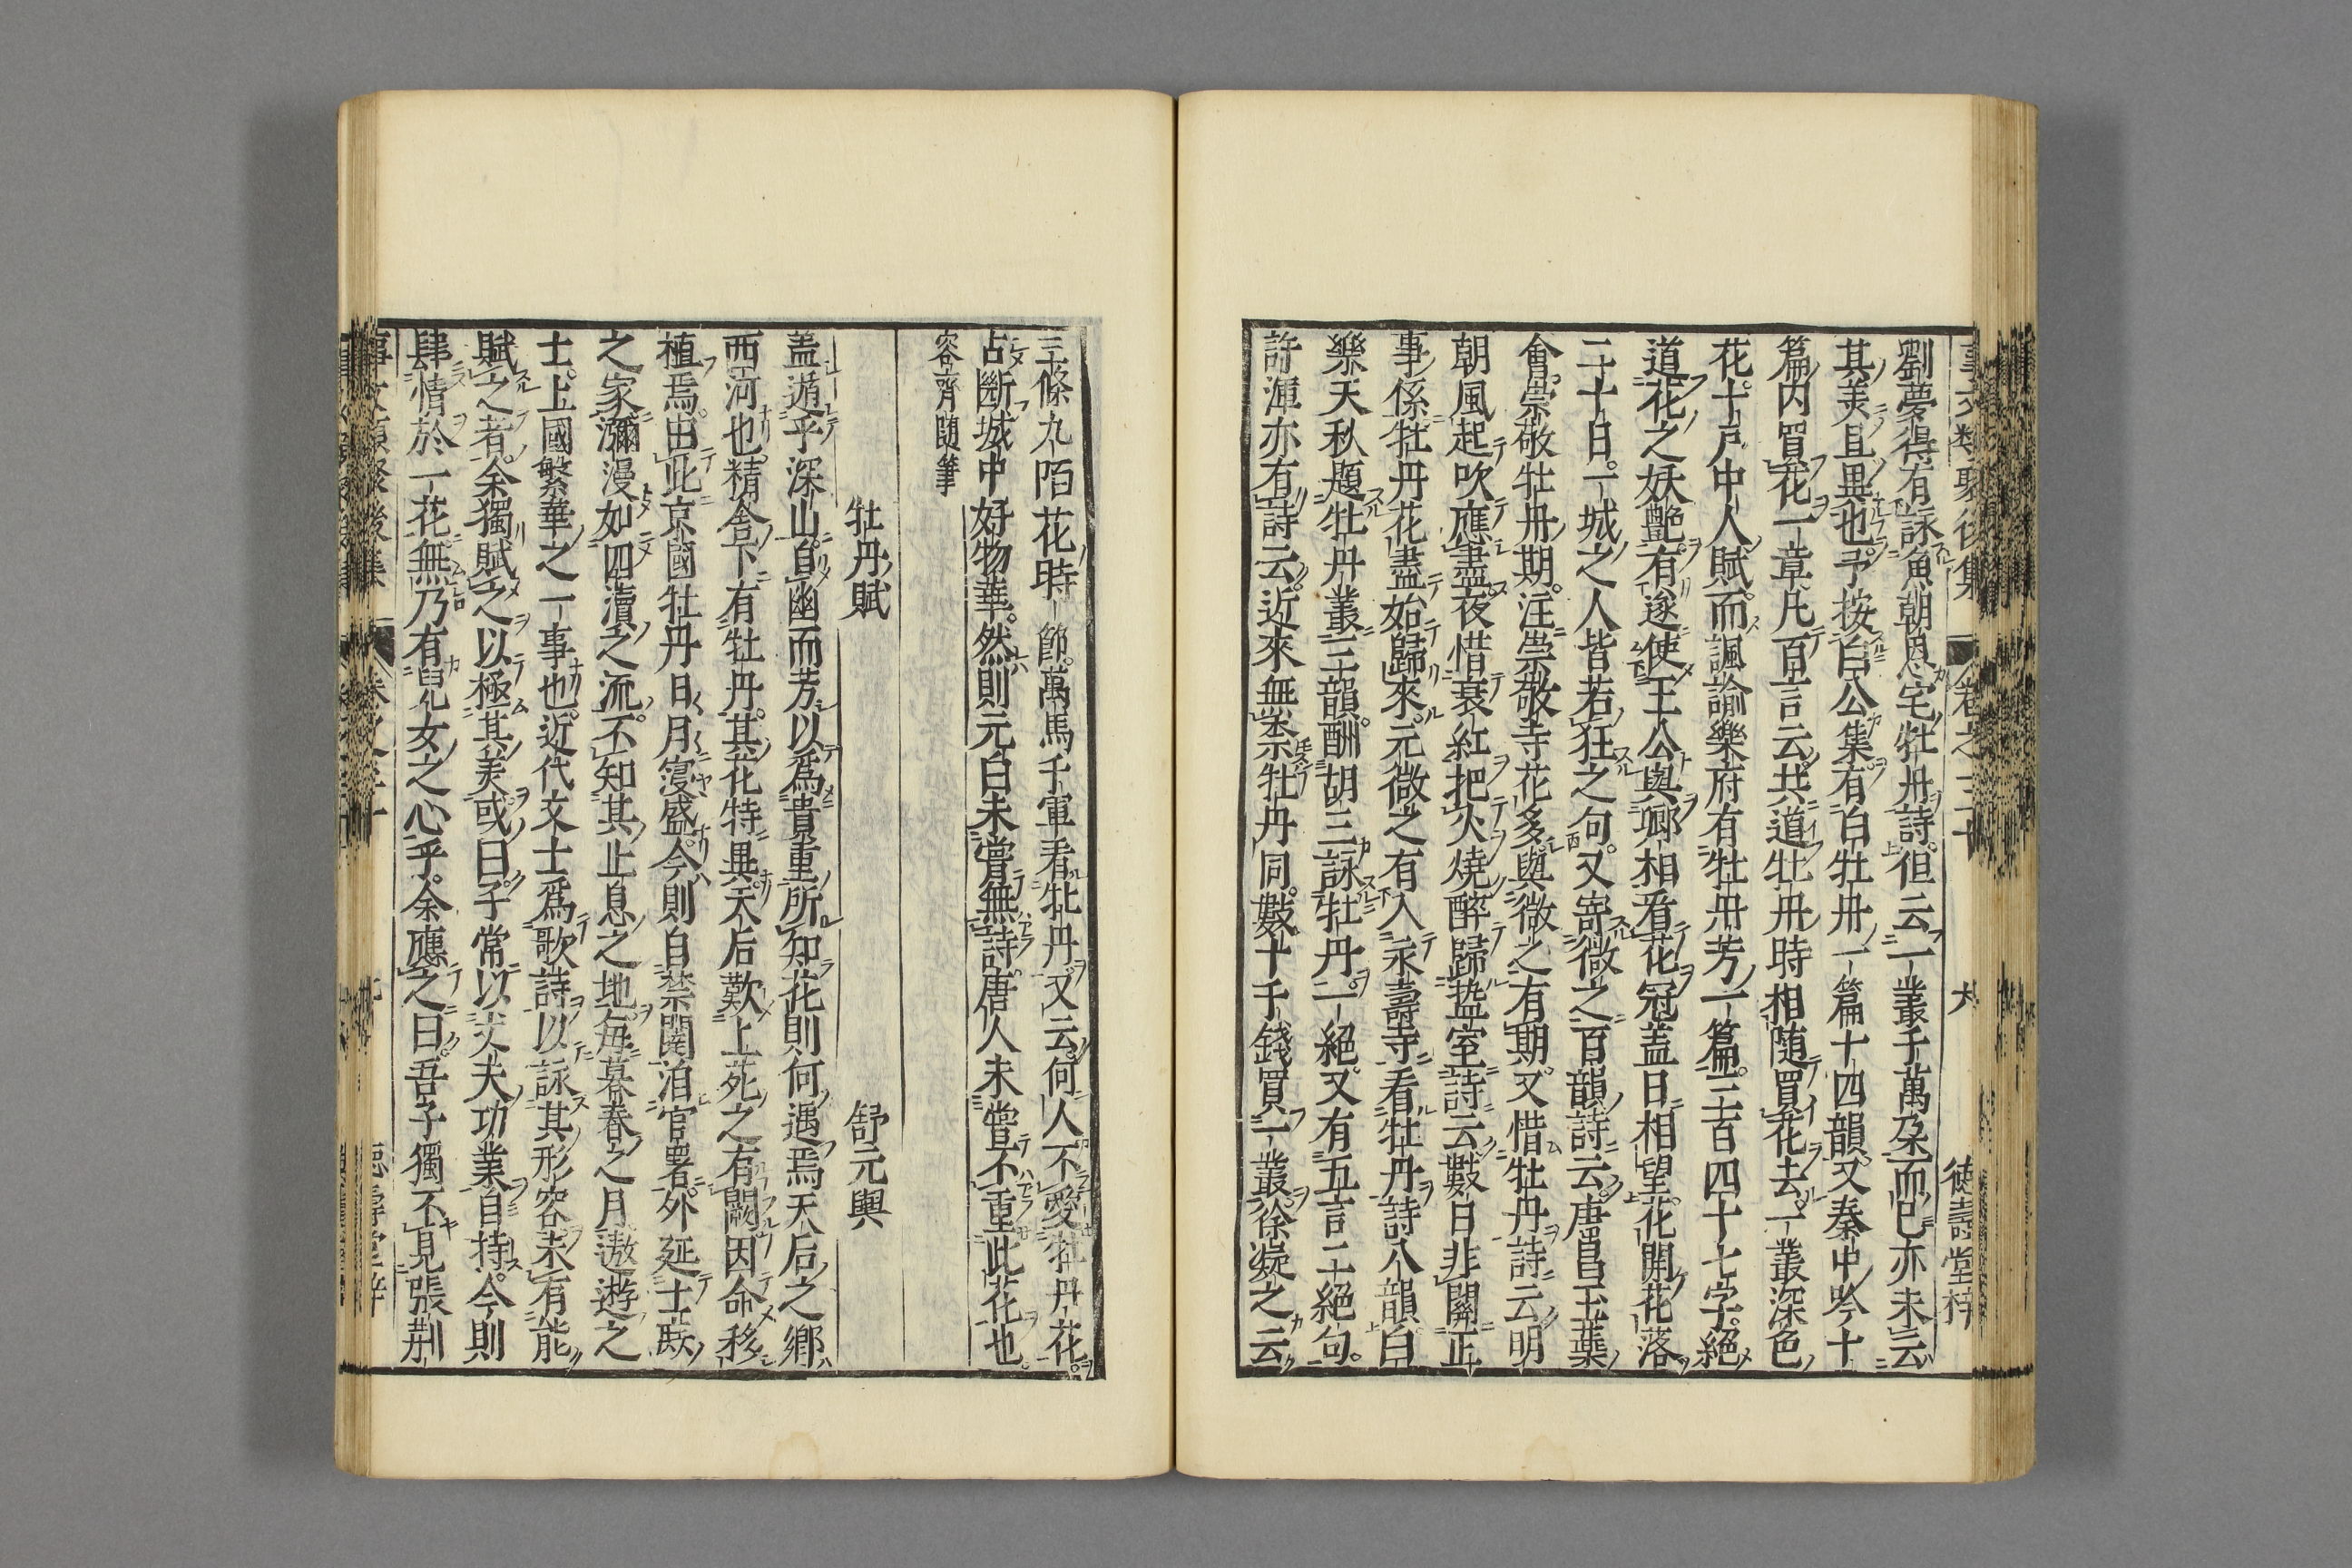 事文類聚後集　卷之三十　大　德壽堂梓
劉夢得有詠魚朝恩宅牡丹詩但云一叢千萬朶而已亦未云
其美且異也予按白公集有白牡丹一篇十四韻又秦中吟十
篇内買花一章凡百言云共道牡丹時相随買花去一叢深色
花十戶中人賦而諷諭樂府有牡丹芳一篇三百四十七字絕
道花之妖艶有遂使王公與卿相看花冠盖日相望花開花落
二十日一城之人皆若狂之句又寄微之百韻詩云唐昌玉蘂
會崇敬牡丹期注崇敬寺花多與微之有期又惜牡丹詩云明
朝風起吹應盡夜惜衰紅把火燒醉歸盩室詩云數日非關王
事係牡丹花盡始歸來元微之有入永壽寺看牡丹詩八韻白
樂天秋題牡丹叢三韻酬胡三詠牡丹一絕又有五言二絕句
許渾亦有詩云近來無柰牡丹同數十千錢買一叢徐凝之云
三條九陌花時節萬馬千軍看牡丹又云何人不愛牡丹花
占斷城中好物華然則元白未嘗無詩唐人未嘗不重此花也
容齊隨筆
牡丹賦　舒元輿
盖遁乎深山自幽而芳以爲貴重所知花則何遇焉天后之鄉
西河也精舍下有牡丹其花特異天后歎上苑之有闕因命移
植焉由此京國牡丹日月寖盛今則自禁闥洎官署外延士庶
之家瀰漫如四瀆之流不知其止息之地每暮春之月遨遊之
士上國繁華之一事也近代文士爲歌詩以詠其形容未有能
賦之者余獨賦之以極其美或曰子常以丈夫功業自持今則
肆情於一花無乃有兒女之心乎余應之曰吾子獨不見張荆
事文類聚後集　卷之三十　德壽堂梓